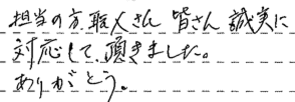 担当の方、職人さん 皆さん 誠実に
対応して、頂きました。
ありがとう。